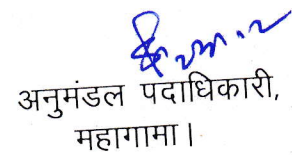 अनुमंडल पदाधिकारी,
महागामा।